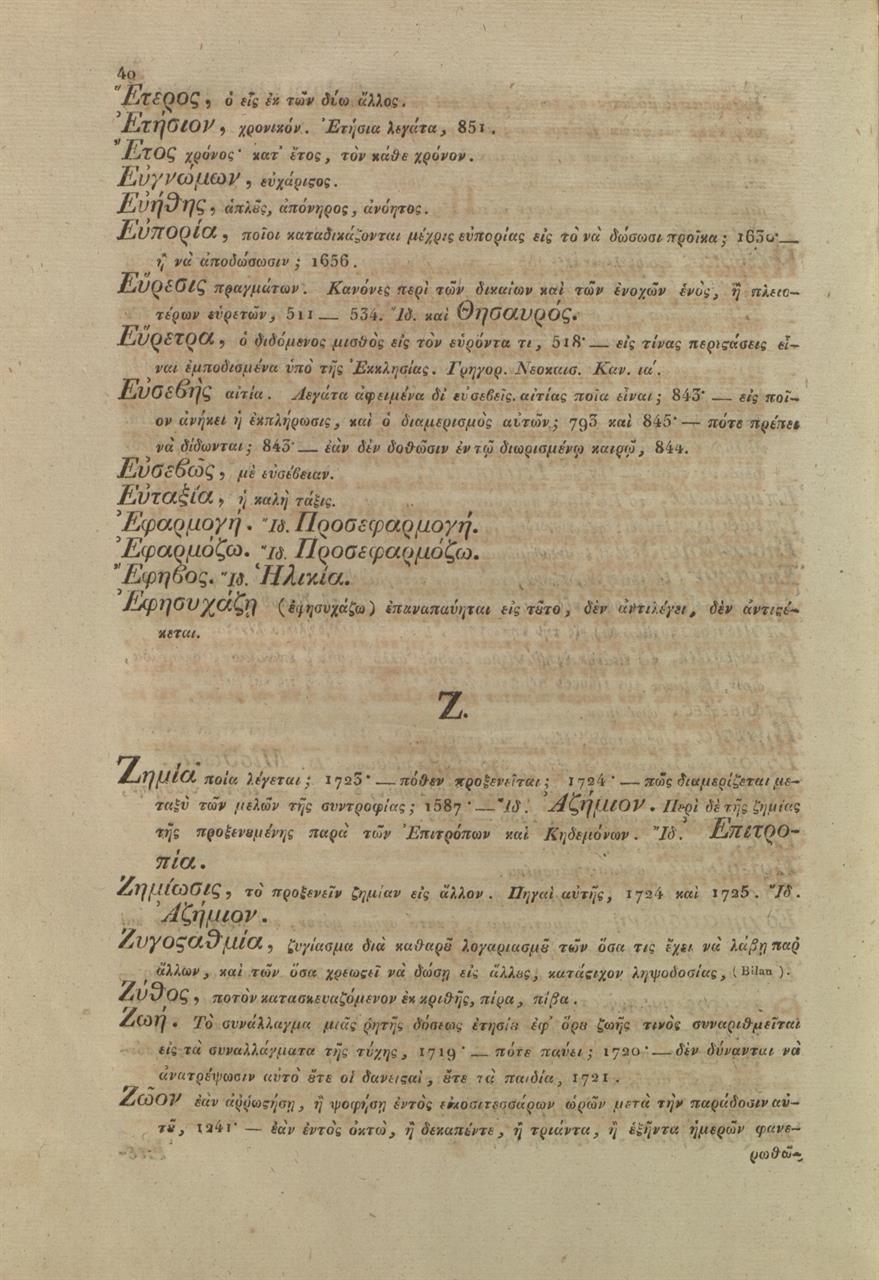 40
Ἕτερος, ὁ εἷς ἐκ τῶν δύω ἄλλος.
Ἐτήσιον, χρονικόν. Ἐτήσια λεγάτα, 851.
Ἔτος χρόνος· κατ' ἔτος, τὸν κάθε χρόνον.
Εὐγνώμων, εὐχάριϛος.
Εὐήθης, ἁπλȣ͂ς, ἀπόνηρος, ἀνόητος.
Εὐπορία, ποῖοι καταδικάζονται μέχρις εὐπορίας εἰς τὸ νὰ δώσωσι προῖκα; 1630·—
ἢ νὰ ἀποδώσωσιν; 1656.
Εὕρεσις πραγμάτων. Κανόνες περὶ τῶν δικαίων καὶ τῶν ἐνοχῶν ἑνὸς, ἢ πλειο-
τέρων εὑρετῶν, 511 — 534. Ἴδ. καὶ Θησαυρός.
Εὕρετρα, ὁ διδόμενος μισθὸς εἰς τὸν εὑρόντα τι, 518· — εἰς τίνας περιϛάσεις εἶ-
ναι ἐμποδισμένα ὑπὸ τῆς Ἐκκλησίας. Γρηγορ. Νεοκαισ. Καν. ια'.
Εὐσεβὴς αἰτία. Λεγάτα ἀφειμένα δι' εὐσεβεῖς αἰτίας ποῖα εἶναι; 843· — εἰς ποῖ-
ον ἀνήκει ἡ ἐκπλήρωσις, καὶ ὁ διαμερισμὸς αὐτῶν; 793 καὶ 845· — πότε πρέπει
νὰ δίδωνται; 843· — ἐὰν δὲν δοθῶσιν ἐν τῷ διωρισμένῳ καιρῷ, 844.
Εὐσεβῶς, μὲ εὐσέβειαν.
Εὐταξία, ἡ καλὴ τάξις.
Ἐφαρμογή. Ἴδ. Προσεφαρμογή.
Ἐφαρμόζω. Ἴδ. Προσεφαρμόζω.
Ἔφηβος. Ἴδ. Ἡλικία.
Ἐφησυχάζῃ (ἐφησυχάζω) ἐπαναπαύηται εἰς τȣ͂το, δὲν ἀντιλέγει, δὲν ἀντιϛέ-
κεται.
Ζ.
Ζημία ποία λέγεται; 1723· — πόθεν προξενεῖται; 1724· — πῶς διαμερίζεται με-
ταξὺ τῶν μελῶν τῆς συντροφίας; 1587· — Ἴδ. Ἀζήμιον. Περὶ δὲ τῆς ζημίας
τῆς προξενȣμένης παρὰ τῶν Ἐπιτρόπων καὶ Κηδεμόνων. Ἴδ. Ἐπιτρο-
πία.
Ζημίωσις, τὸ προξενεῖν ζημίαν εἰς ἄλλον. Πηγαὶ αὐτῆς, 1724 καὶ 1725. Ἴδ.
Ἀζήμιον.
Ζυγοϛαθμία, ζυγίασμα διὰ καθαρȣ͂ λογαριασμȣ͂ τῶν ὅσα τις ἔχει νὰ λάβῃ παρ'
ἄλλων, καὶ τῶν ὅσα χρεωϛεῖ νὰ δώσῃ εἰς ἄλλȣς, κατάϛιχον ληψοδοσίας, (Bilan).
Ζύθος, ποτὸν κατασκευαζόμενον ἐκ κριθῆς, πίρα, πίβα.
Ζωή. Τὸ συνάλλαγμα μιᾶς ῥητῆς δόσεως ἐτησίȣ ἐφ' ὅρȣ ζωῆς τινὸς συναριθμεῖται
εἰς τὰ συναλλάγματα τῆς τύχης, 1719· — πότε παύει; 1720· — δὲν δύνανται νὰ
ἀνατρέψωσιν αὐτὸ ȣ̓́τε οἱ δανειϛαὶ, ȣ̓́τε τὰ παιδία, 1721.
Ζῶον ἐὰν ἀῤῥωϛήσῃ, ἢ ψοφήσῃ ἐντὸς εἰκοσιτεσσάρων ὡρῶν μετὰ τὴν παράδοσιν αὐ-
τȣ͂, 1241· — ἐὰν ἐντὸς ὀκτὼ, ἢ δεκαπέντε, ἢ τριάντα, ἢ ἑξῆντα ἡμερῶν φανε-
ρωθῶ-